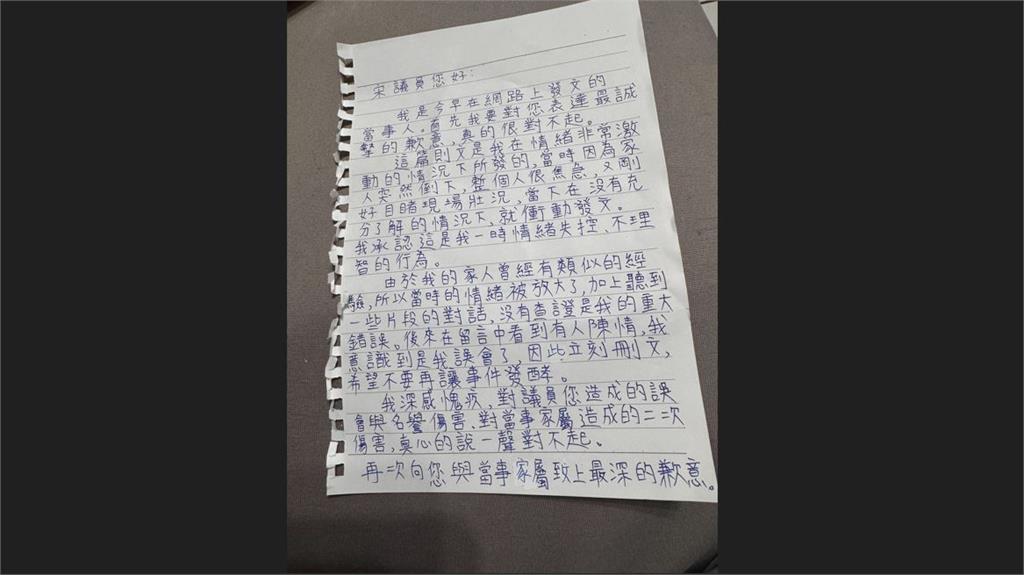 宋議員您好:
我是今早在網路上發文的
當事人。首先我要對您表達最誠
摯的歉意,真的很對不起。
這篇則文是我在情緒非常激
動的情況下所發的,當時因為家
人突然倒下,整個人很焦急,又剛
好目睹現場壯況,當下在沒有充
分了解的情況下,就衝動發文。
我承認這是我一時情緒失控、不理
智的行為。
由於我的家人曾經有類似的經
驗,所以當時的情緒被放大了,加上聽到
一些片段的對話,沒有查證是我的重大
錯誤。後來在留言中看到有人陳情,我
意識到是我誤會了,因此立刻刪文,
希望不要再讓事件發酵。
我深感愧疚,對議員您造成的誤
會與名譽傷害、對當事家屬造成的二次
傷害,真心的說一聲對不起。
再次向您與當事家屬致上最深的歉意。